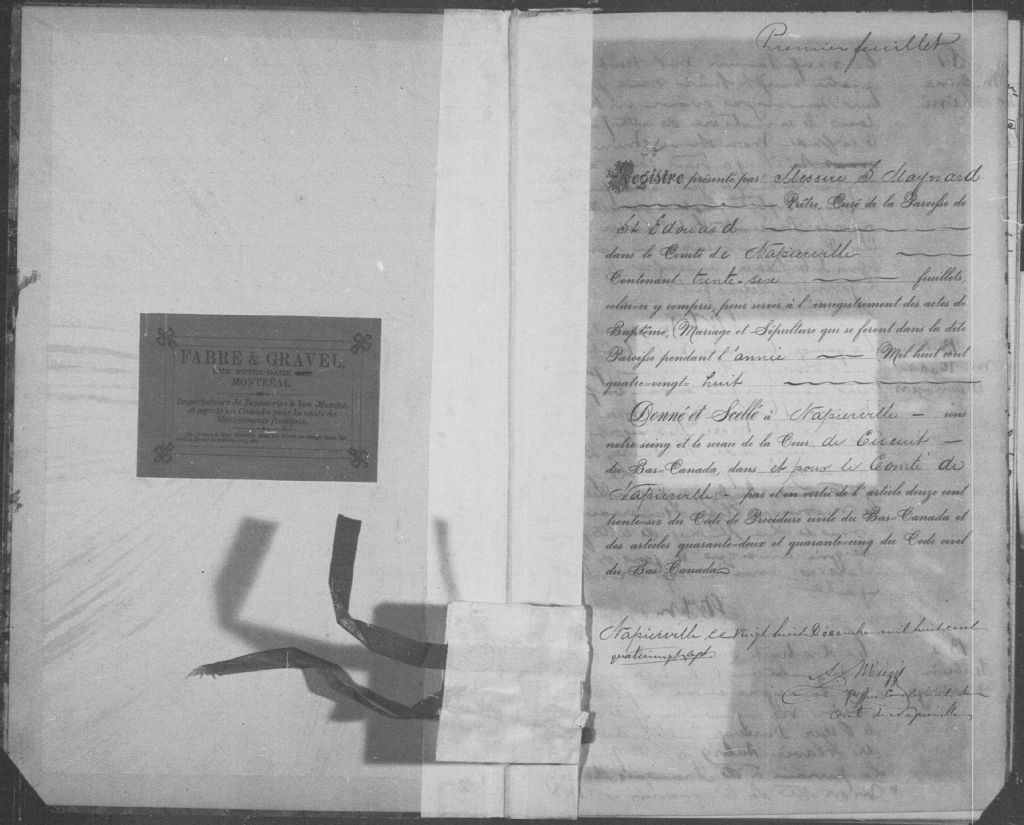 FABRE & GRAVEL,
RUE NOTRE-DAME
MONTRÉAL
Importateurs de Tapisseries à bon Marché,
et agents au Canada pour la vente de
Médicaments français.
Premier feuillet
Registre présenté par Messire S Maynard
Prêtre, Curé de la Paroisse de
St Edouard
dans le Comté de Napierville
Contenant trente-six feuillets,
celui-ce y compris, pour servir à l'enregistrement des actes de
Baptême, Mariage et Sépulture qui se feront dans la dite
Paroisse pendant l'année Mil huit cent
quatre-vingt huit
Donné et Scellé à Napierville sous
notre seing et le sceau de la Cour de Circuit
du Bas-Canada, dans et pour le Comté de
Napierville par et en vertu de l'article douze cent
trente-six du Code de Procédure civile du Bas-Canada et
des articles quarante-deux et quarante-cinq du Code civil
du Bas Canada.
Napierville ce vingt huit Décembre mil huit cent
quatrevingt sept
Comté de Napierville